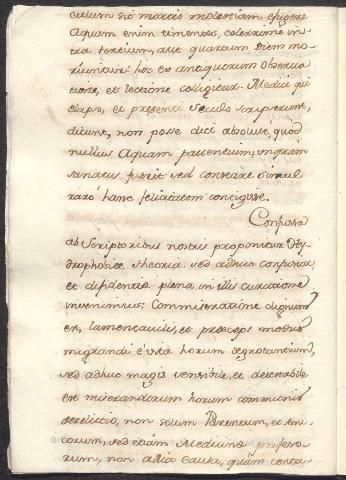 culum sit mortis molestiam effugere
Aquam enim timentes, celerrime in-
tra tertium, aut quartum Diem mo-
riuntur: hoc ex antiquorum Observa-
tione, et lectione colligitur. Medici qui
elapso, et presenti Seculo scripserunt,
dicunt, non posse dici absolute, quod
nullus Aquam paventium, unquam
sanatus fuerit sed constare simul
raro hanc felicitatem contigisse.
Confussa
ab Scriptoribus nostris proponitur Hy-
drophobiæ theoria: sed adhuc confusior,
et difidentiæ plena, in illis curatione
invenimus: Commiseratione dignum
est, lamentabilis, et præceps modus
migrandi è vita horum ægrotantium,
sed adhuc magis sensibile, et detestabile
est miserandorum horum communis
derelictio, non solum Parentum, et Ami-
corum, sed etiam Medicinæ professo-
rum, non alia causa, quàm conta-